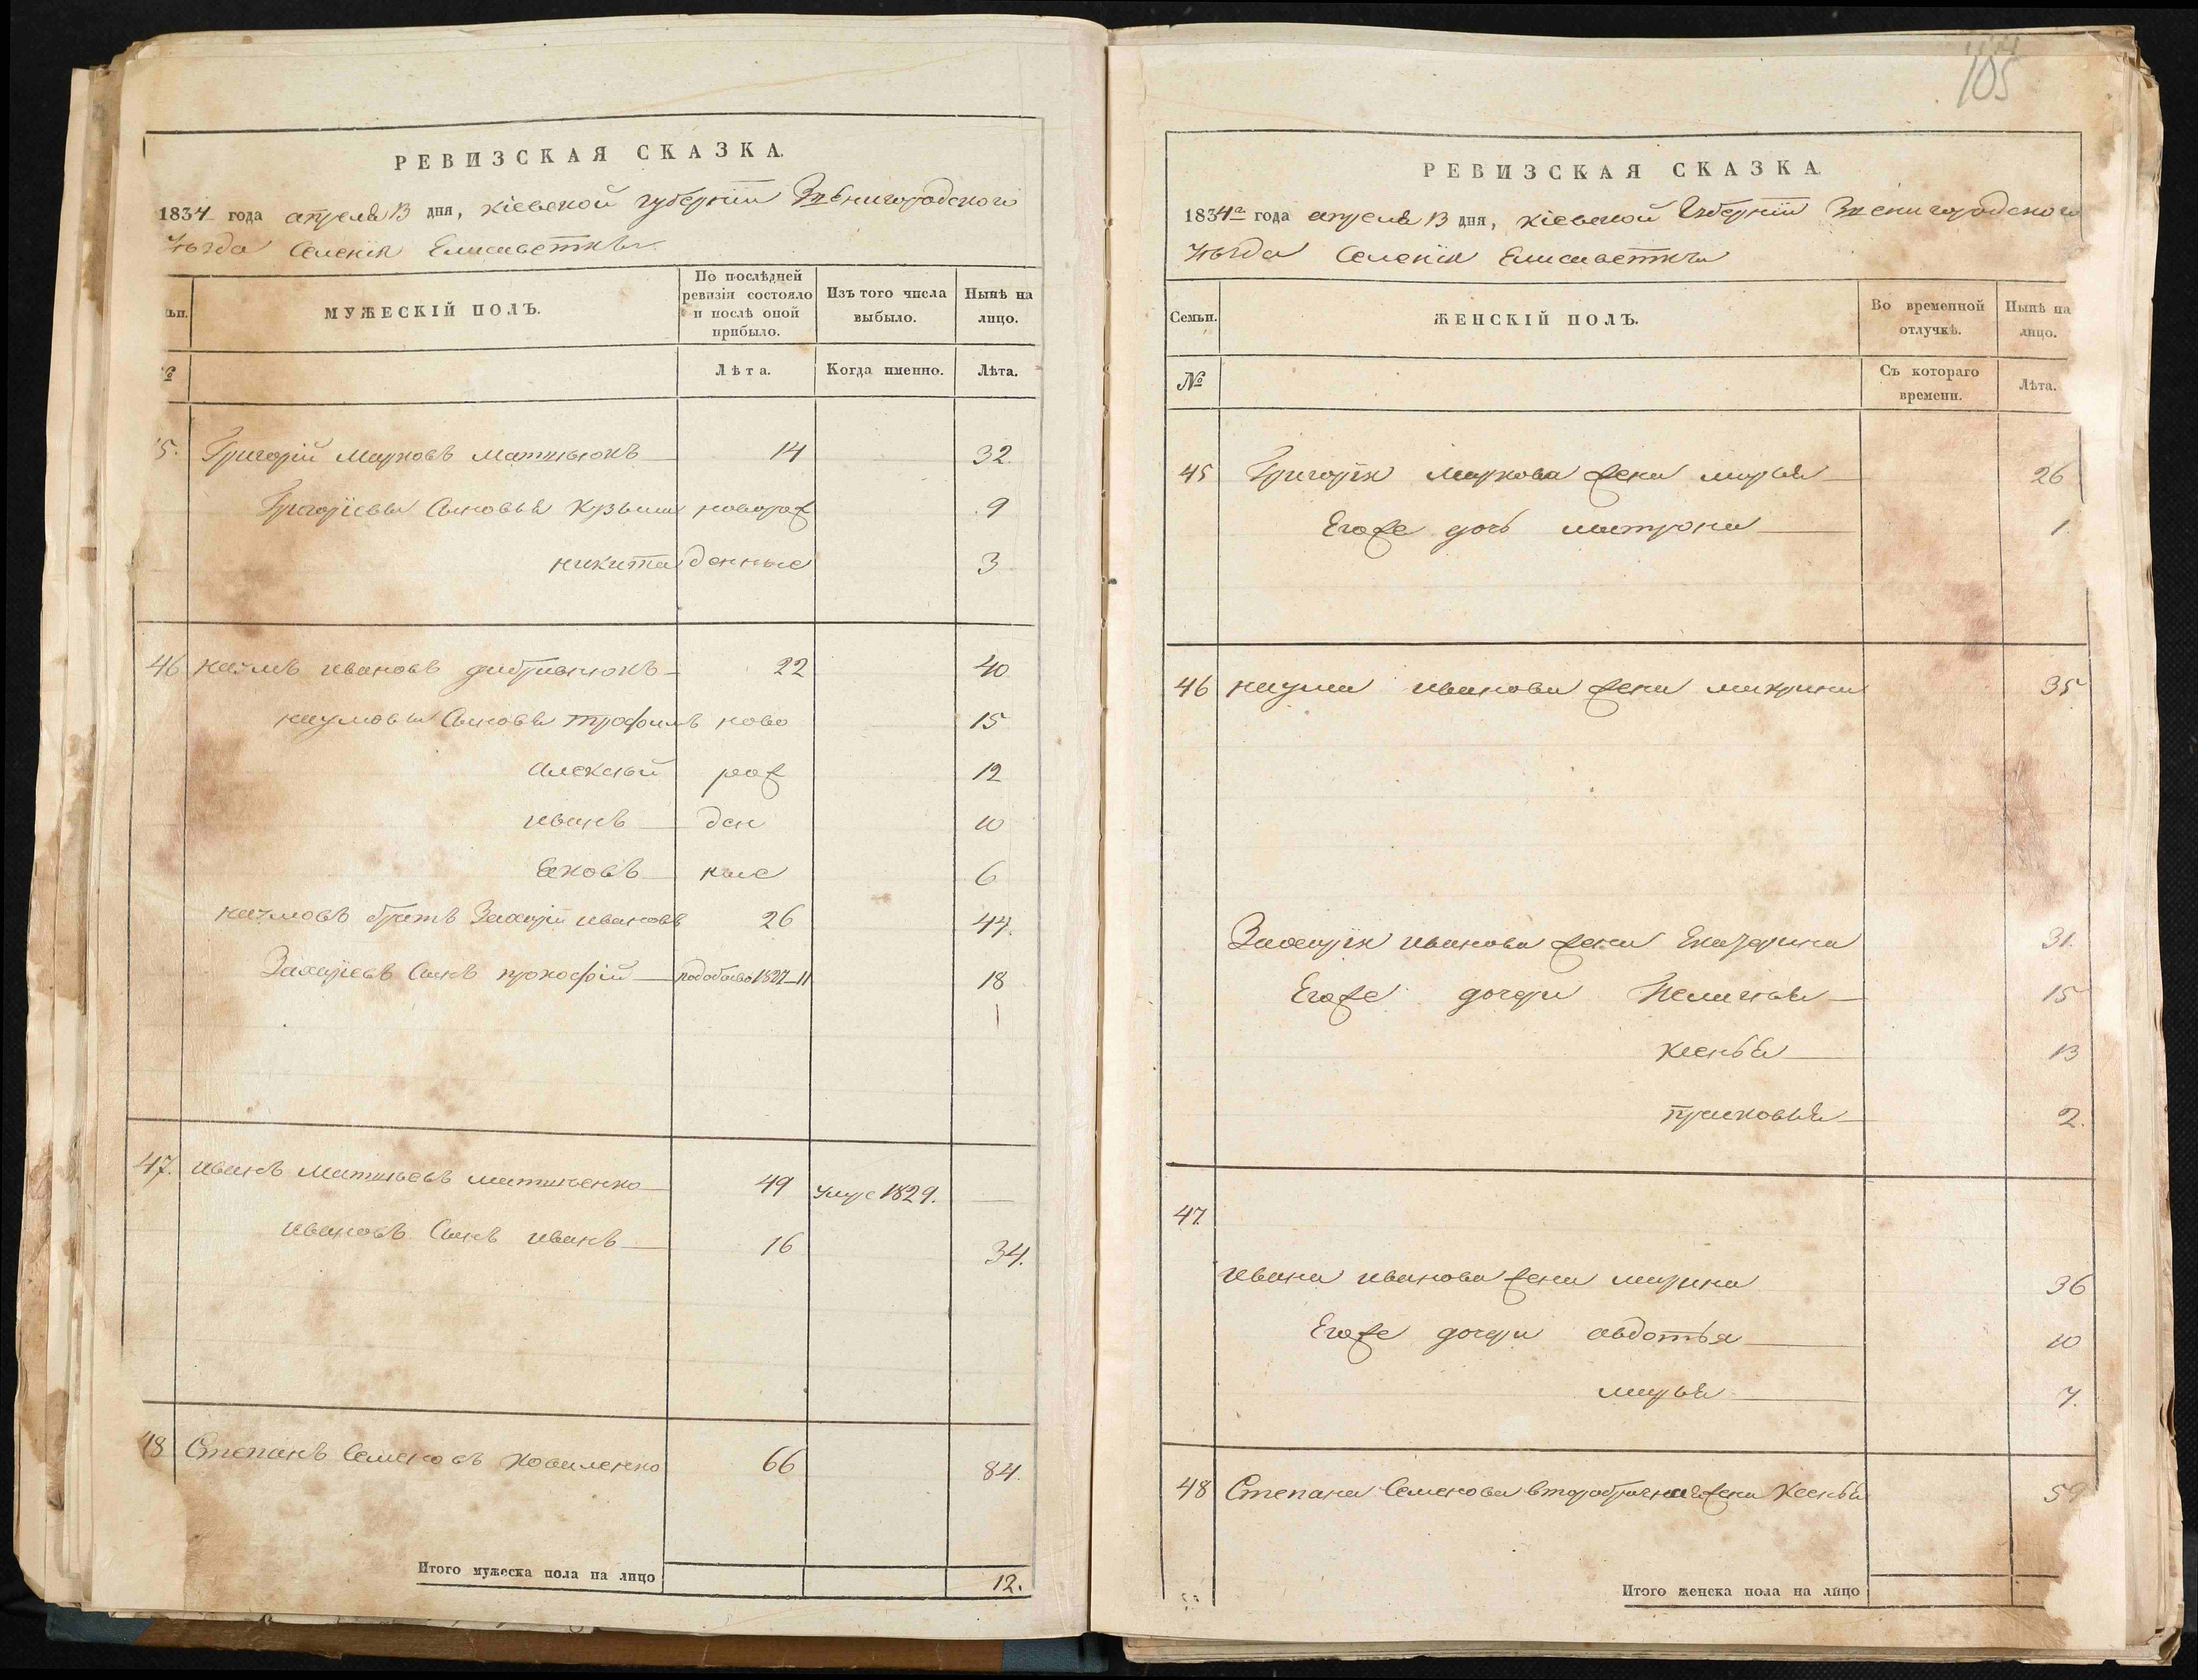 РЕВИЗСКАЯ СКАЗКА.
1834 года апреля 13 дня, Кіевской губерніи Звенигородского
уѣзда Селенія Елисаветки
МУЖЕСКІЙ ПОЛЪ.
По послѣдней ревизіи состояло и послѣ оной прибыло.
Изъ того числа выбыло.
Нынѣ на лицо.
Лѣта. Когда именно. Лѣта.
5. Григорій Марковъ Матвьюкъ 14 32.
Григорієвы Сыновья Кузьма новорож 9
никита денные 3
46 наумъ ивановъ 22 40
наумовы Сыновья трофимъ ново 15
Алексѣй рож 12
иванъ ден 10
Яковъ ные 6
наумовъ братъ Захарій ивановъ 26 44.
Захарієвъ Сынъ прокофій 1827 11 18
47. иванъ Матвьевъ матвьенко 49 умре 1829. —
ивановъ Сынъ иванъ 16 34.
48 Степанъ Семеновъ Коваленко 66 84.
Итого мужеска пола на лицо 12.
105
РЕВИЗСКАЯ СКАЗКА.
1834го года апреля 13 дня, Кіевской Губерніи Звенигородского
уѣзда Селенія Елисаветки
Семьи. ЖЕНСКІЙ ПОЛЪ.
Во временной отлучкѣ.
Нынѣ на лицо.
№ Съ котораго времени. Лѣта.
45 Григорія маркова жена марья 26
Егоже дочь матрона 1.
46 наума иванова жена макрина 35
Захарія иванова жена Екатерина 31.
Егоже дочери Пелагея 15
Ксенья 13
прасковья 2.
47.
Ивана иванова жена марина 36
Егоже дочери авдотья 10
марья 7.
48 Степана Семенова второбрачная жена Ксенья 59
Итого женска пола на лицо